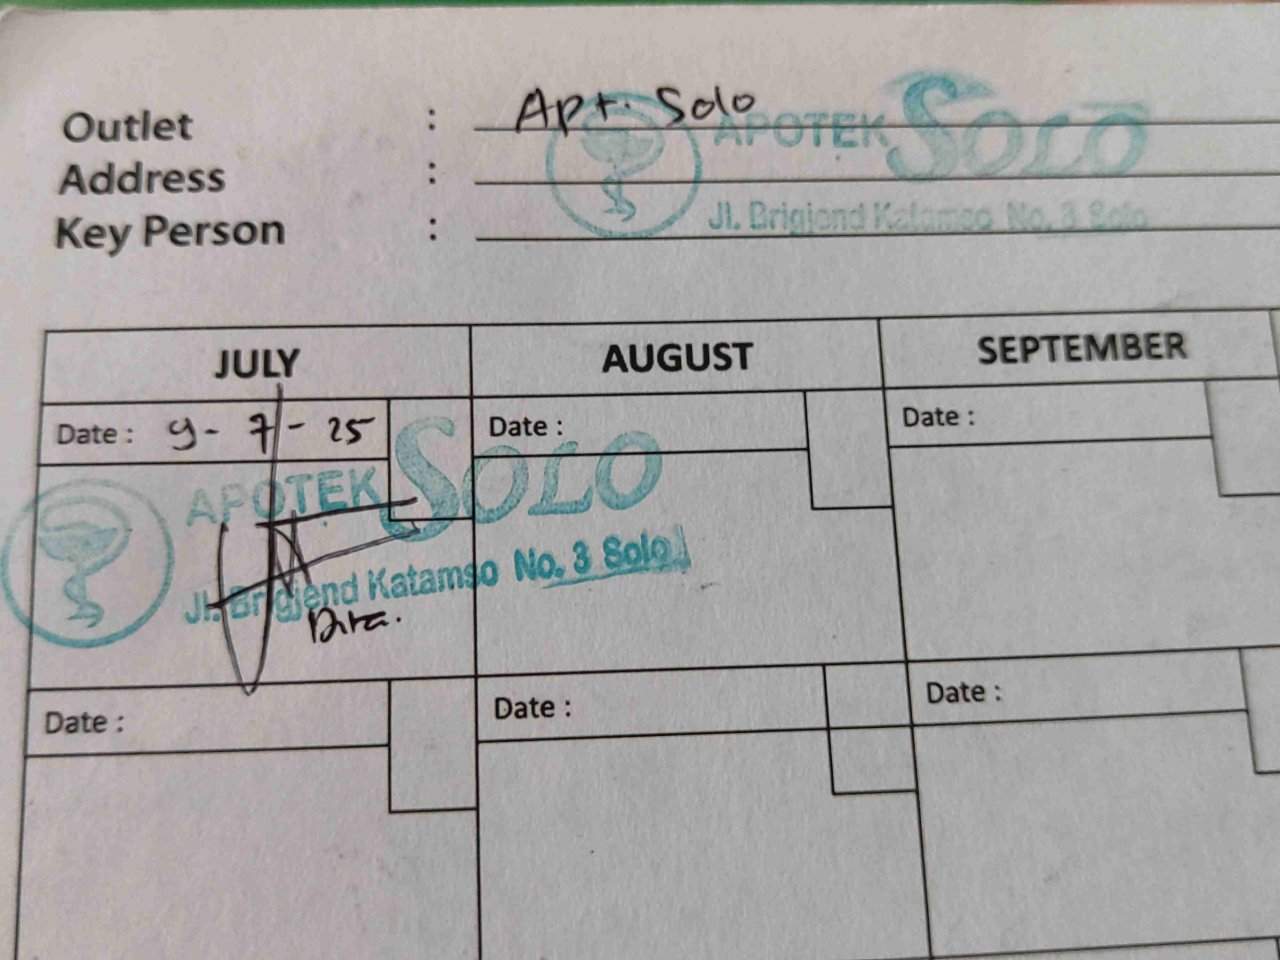 Outlet : Apt. Solo
APOTEK SOLO
Address :
Jl. Brigjend Katamso No. 3 Solo
Key Person :
JULY AUGUST SEPTEMBER
Date : 9 - 7 - 25 Date : Date :
APOTEK SOLO
Jl. Brigjend Katamso No. 3 Solo
Date : Date : Date :